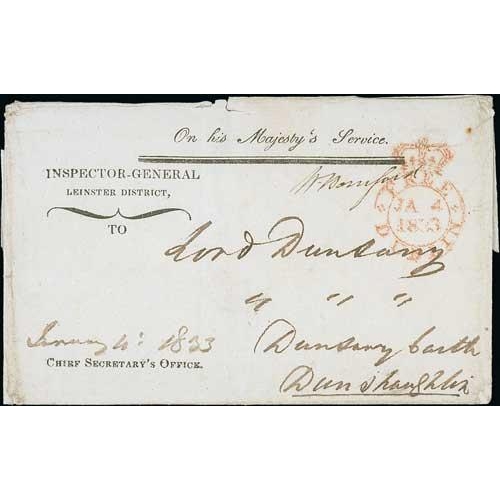 On his Majesty's Service.
INSPECTOR-GENERAL
LEINSTER DISTRICT,
TO
JA 4
1833
Lord Dunsany
" " "
January 4: 1833
Dunsany Castle
CHIEF SECRETARY'S OFFICE.
Dunshaughlin